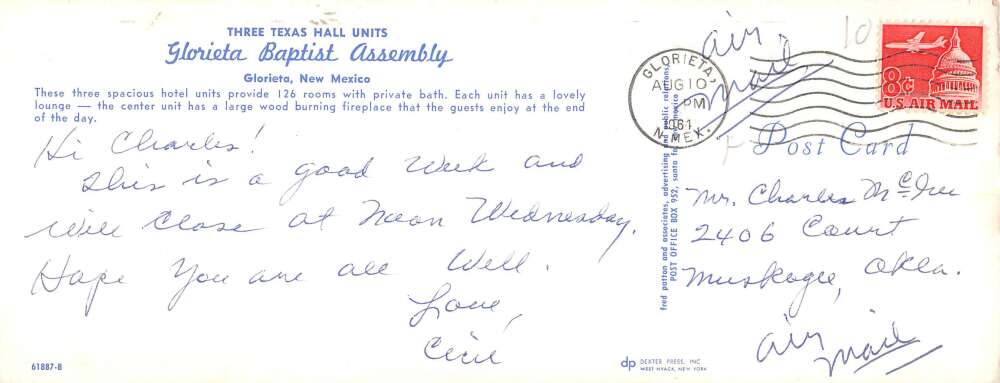 THREE TEXAS HALL UNITS
Glorieta Baptist Assembly
Glorieta, New Mexico
These three spacious hotel units provide 126 rooms with private bath. Each unit has a lovely
lounge — the center unit has a large wood burning fireplace that the guests enjoy at the end
of the day.
Hi Charles!
This is a good Week and
will Close at Noon Wednesday.
Hope You are all Well.
Love,
Cecil
61887-B
fred patton and associates, advertising and public relations
POST OFFICE BOX 952, santa fe, new mexico
dp DEXTER PRESS, INC
WEST NYACK, NEW YORK
air
mail
10
GLORIETA,
AUG 10
PM
N. MEX.
8¢
U.S. AIR MAIL
Post Card
Mr. Charles McGee
2406 Court
Muskogee, Okla.
air
mail